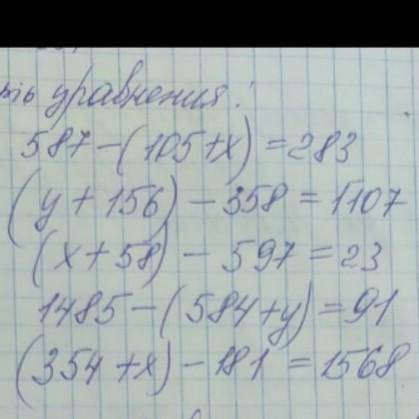 уравнения:
587-(105+x)=283
(y+156)-358=1107
(x+58)-597=23
1485-(584+y)=91
(354+x)-181=1568